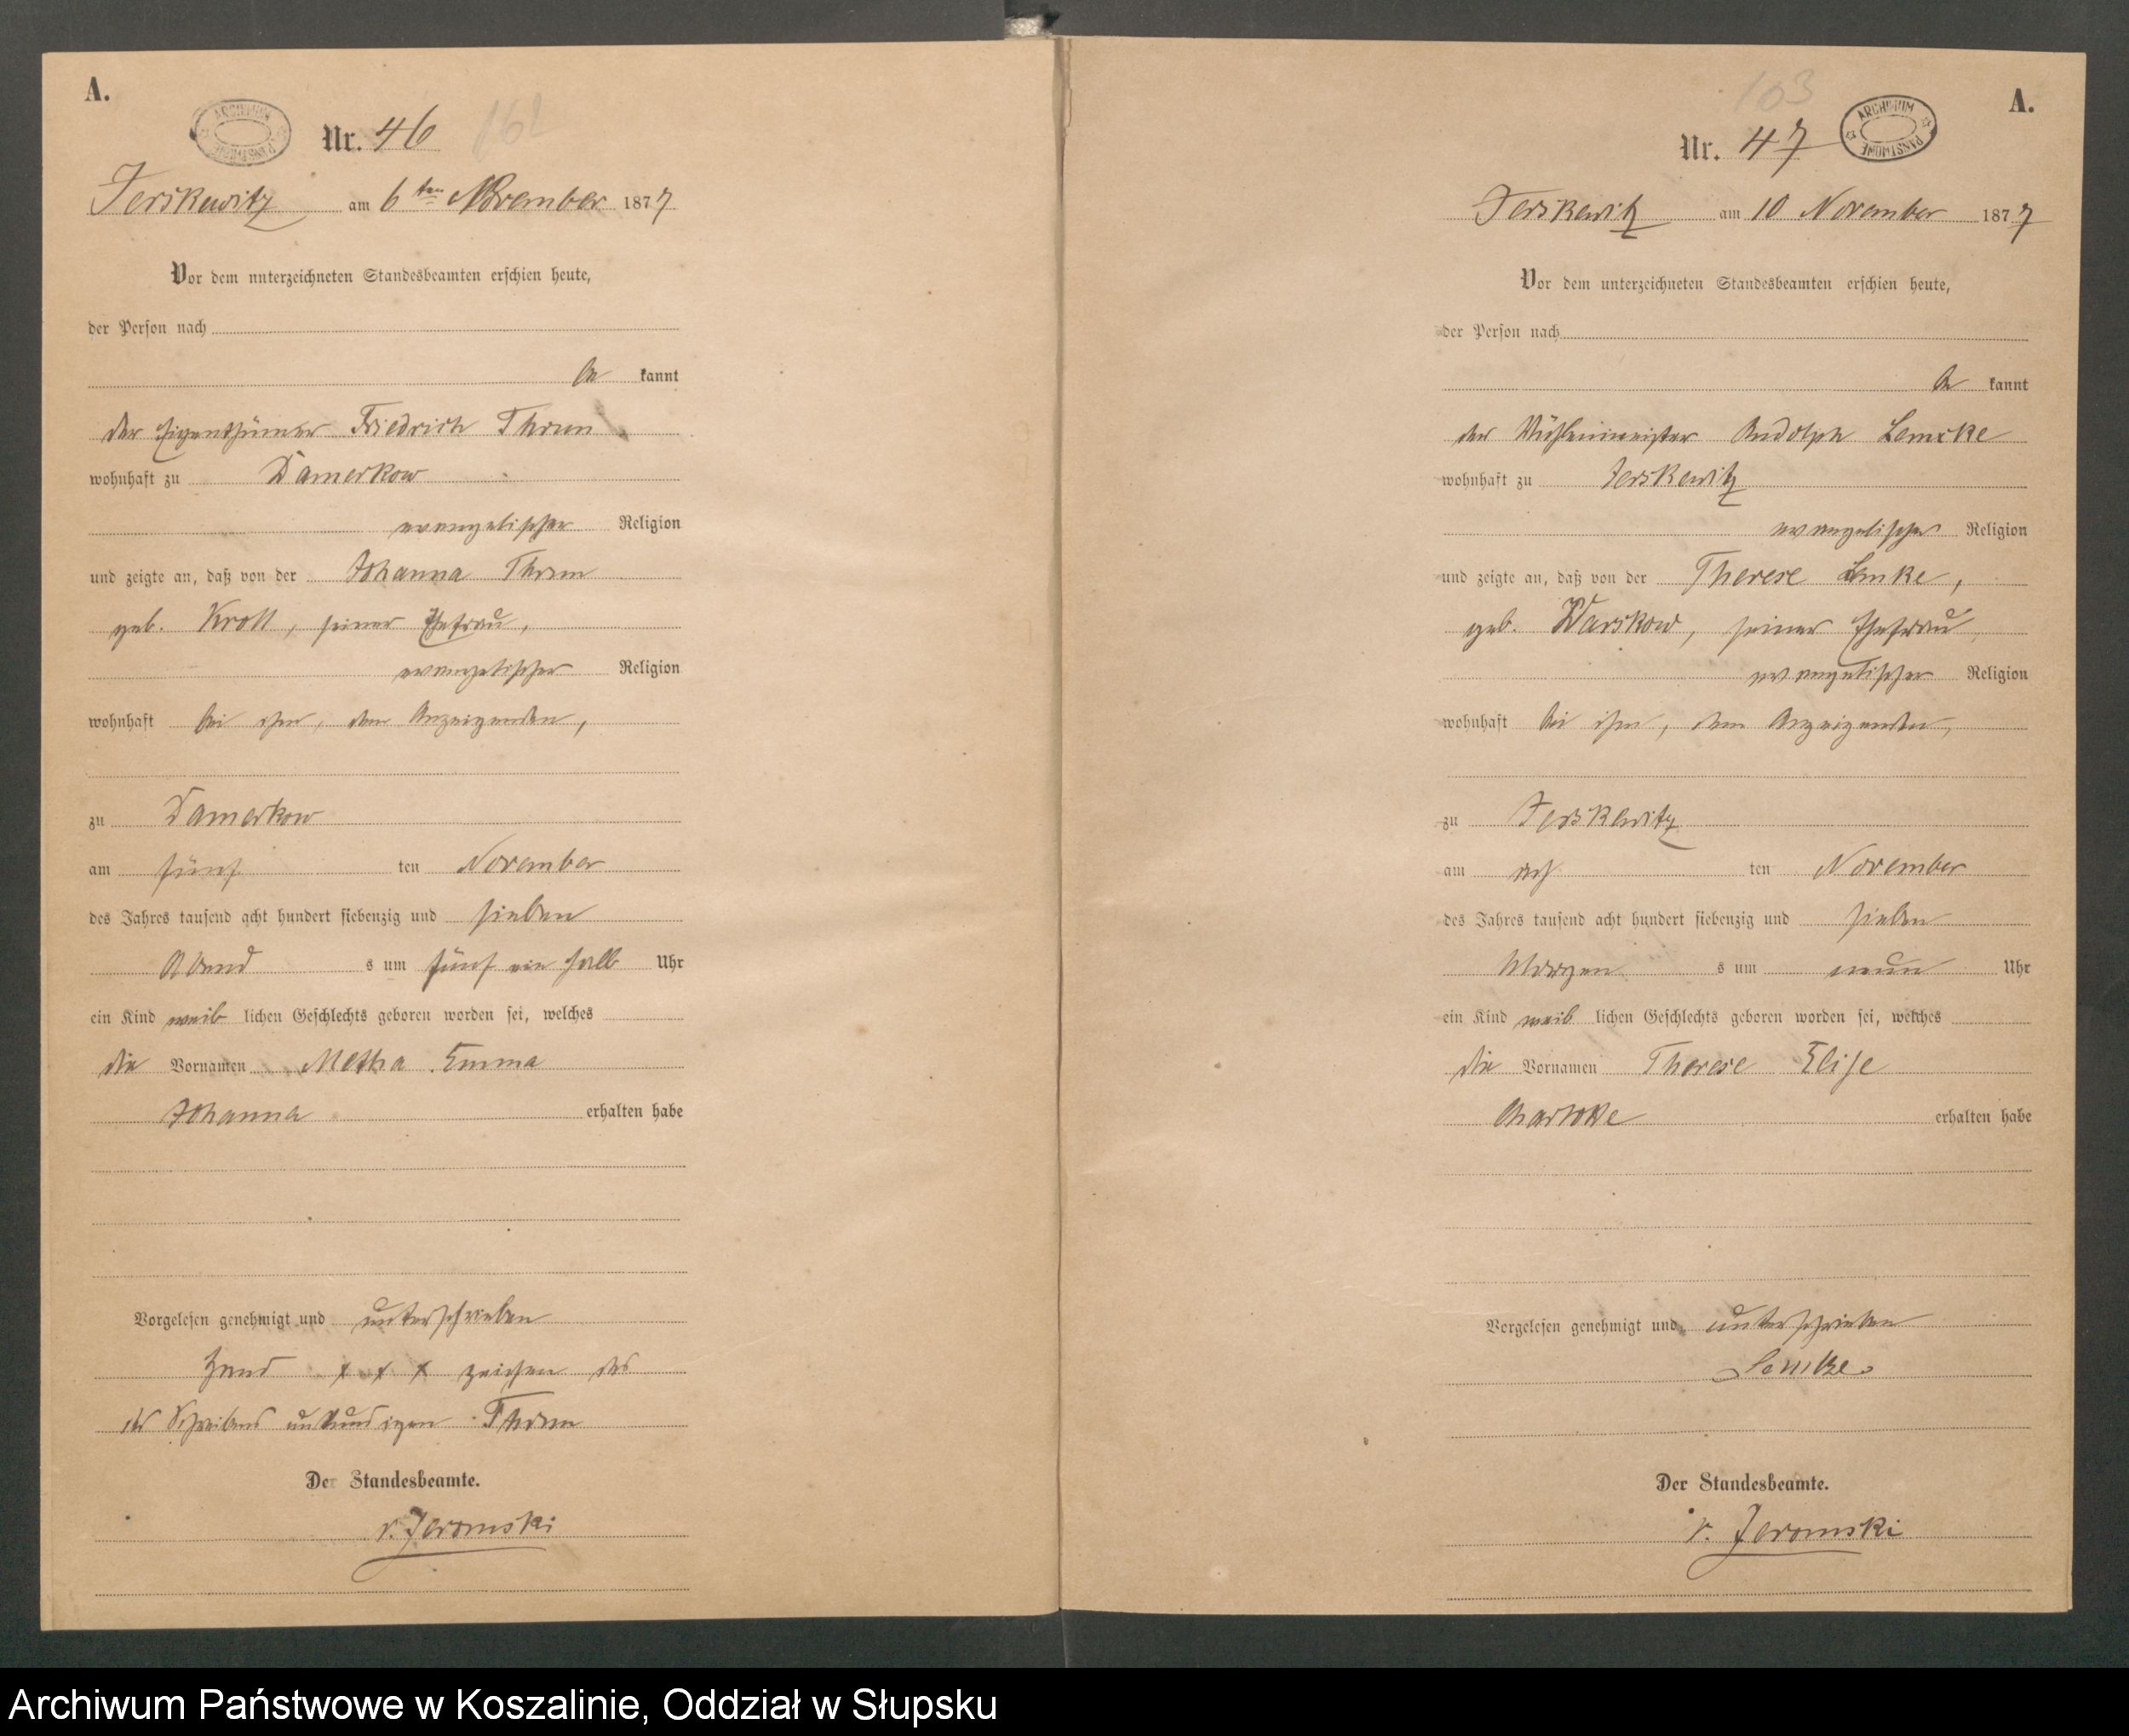 A.
ARCHIWUM PAŃSTWOWE
Nr. 46
Jerskewitz am 6ten November 1877
Vor dem unterzeichneten Standesbeamten erschien heute,
der Person nach
be kannt
der Eigenthümer Friedrich Thrun
wohnhaft zu Damerkow
evangelischer Religion
und zeigte an, daß von der Johanna Thrun
geb. Kroll, seiner Ehefrau,
evangelischer Religion
wohnhaft bei ihm, dem Anzeigenden,
zu Damerkow
am fünf ten November
des Jahres tausend acht hundert siebenzig und sieben
Abend s um fünf ein halb Uhr
ein Kind weib lichen Geschlechts geboren worden sei, welches
die Vornamen Metha Emma
Johanna erhalten habe
Vorgelesen genehmigt und unterschrieben
Hand x x x zeichen des
des Schreibens unkundigen Thrun
Der Standesbeamte.
v. Jeromski
103
A.
ARCHIWUM PAŃSTWOWE
Nr. 47
Jerskewitz am 10 November 1877
Vor dem unterzeichneten Standesbeamten erschien heute,
der Person nach
be kannt
der Mühlenmeister Rudolph Lemcke
wohnhaft zu Jerskewitz
evangelischer Religion
und zeigte an, daß von der Therese Lemke,
geb. Warskow, seiner Ehefrau,
evangelischer Religion
wohnhaft bei ihm, dem Anzeigenden,
zu Jerskewitz
am ach ten November
des Jahres tausend acht hundert siebenzig und sieben
Morgen s um neun Uhr
ein Kind weib lichen Geschlechts geboren worden sei, welches
die Vornamen Therese Elise
Charlotte erhalten habe
Vorgelesen genehmigt und unterschrieben
Lemke
Der Standesbeamte.
v. Jeromski
Archiwum Państwowe w Koszalinie, Oddział w Słupsku